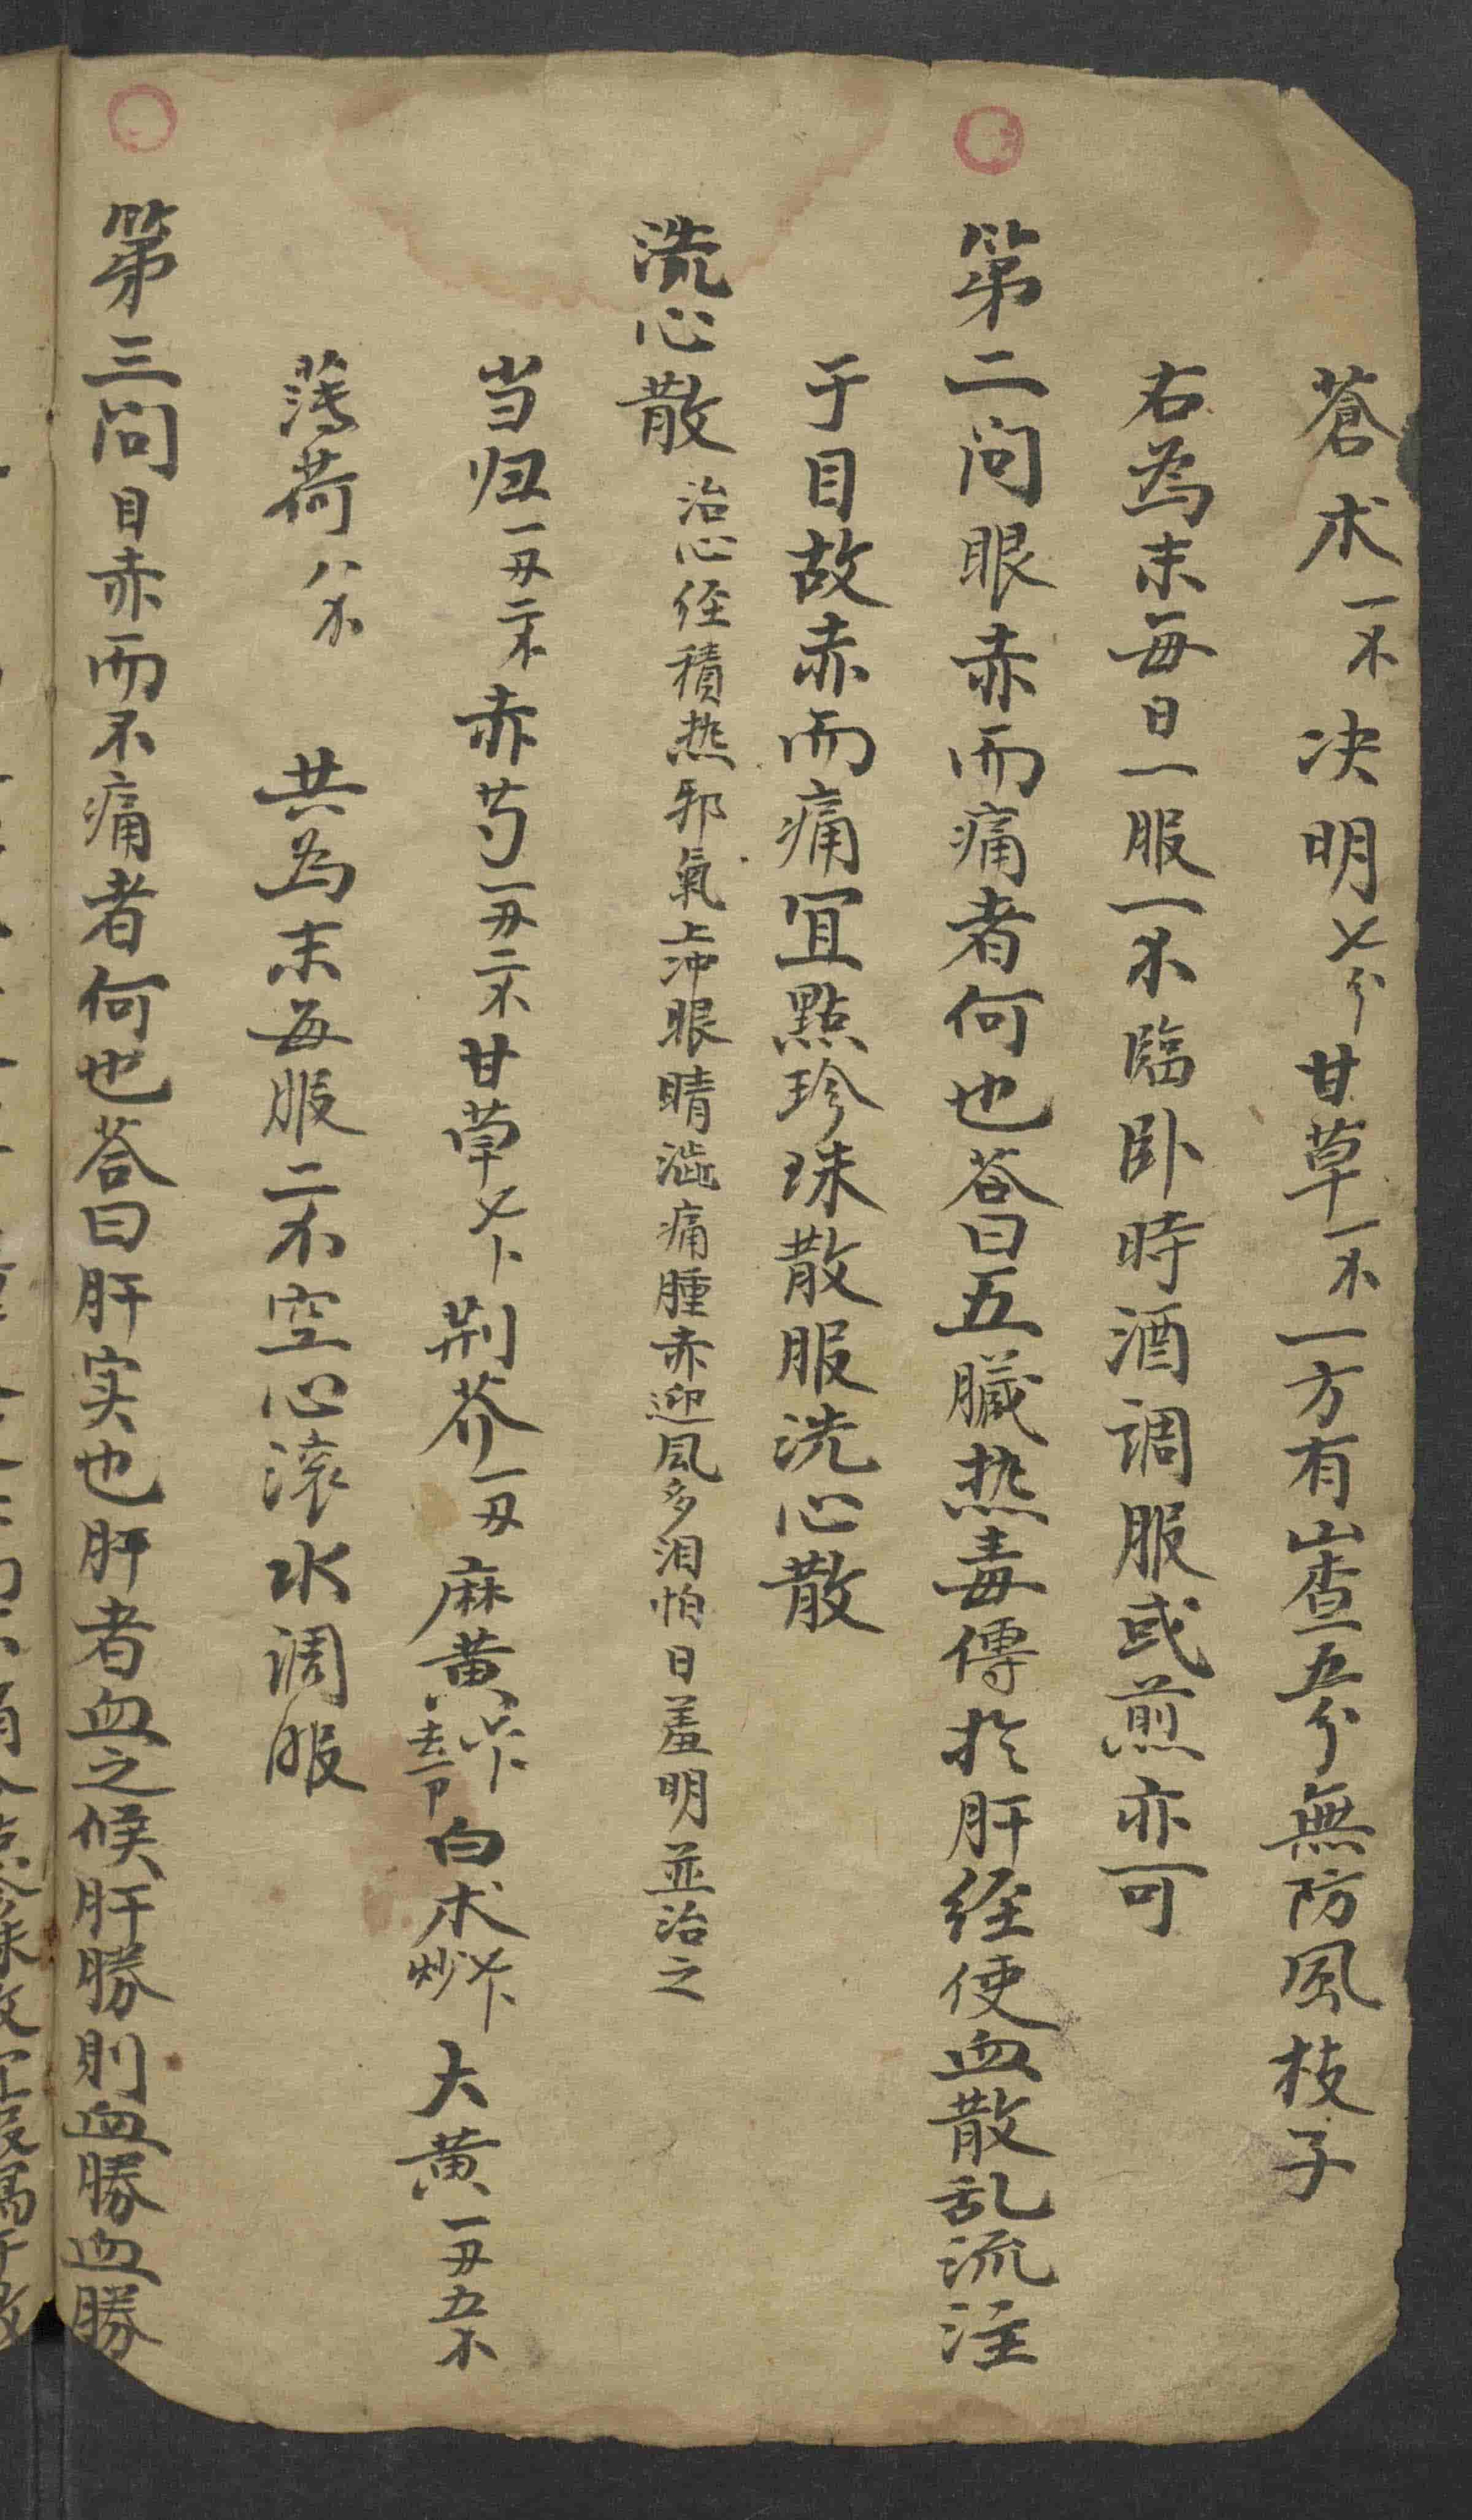 蒼朮一不 决明〤分 甘草一不 一方有山查五分無防風枝子
右為末每日一服一不臨卧時酒调服或煎亦可
第二问眼赤而痛者何也荅曰五臟热毒傳於肝经使血散乱流注
于目故赤而痛宜點珍珠散服洗心散
洗心散 治心经積热邪氣上冲眼睛澁痛腫赤迎風多泪怕日羞明並治之
当归一刄二不 赤芍一刄二不 甘草〤卜 荆芥一刄 麻黄去节 白朮炒〤卜 大黄一刄五不
薄荷八不 共為末每服二不空心滚水调服
第三问目赤而不痛者何也荅曰肝实也肝者血之候肝勝則血勝血勝